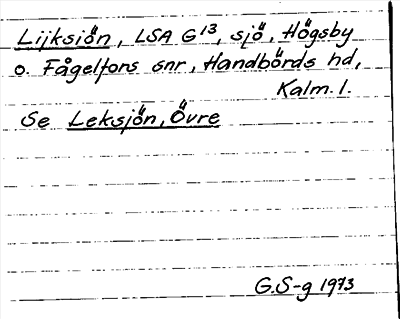 Lijksiön, LSA G 13, sjö, Högsby
o. Fågelfors snr, Handbörds hd,
Kalm. l.
Se Leksjön, Övre
G.S-g 1973